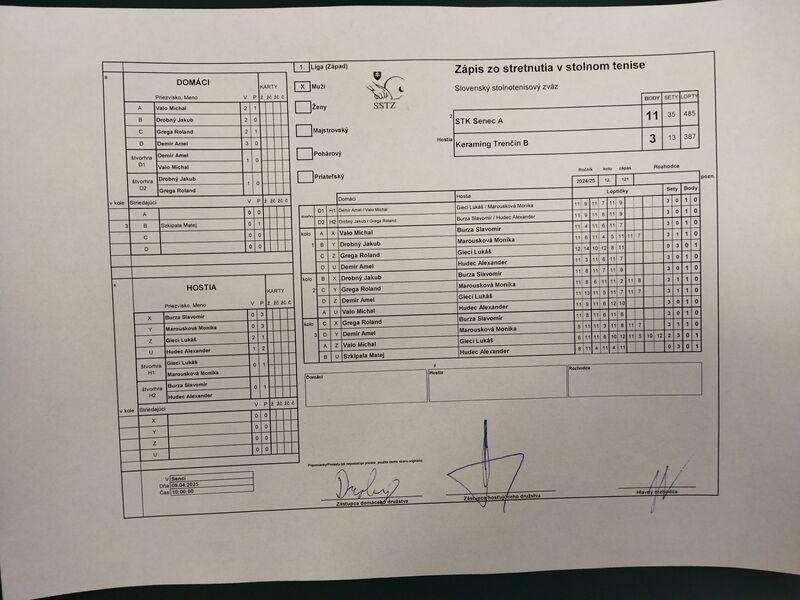 1. Liga (Západ)
X Muži
Ženy
Majstrovský
Pohárový
Priateľský
SSTZ
Zápis zo stretnutia v stolnom tenise
Slovenský stolnotenisový zväz
BODY SETY LOPTY
STK Senec A 11 35 485
Hostia Keraming Trenčín B 3 13 387
Ročník kolo zápas Rozhodca
2024/25 12. 121
DOMÁCI
KARTY
Priezvisko, Meno V P ž žč žč č
A Valo Michal 2 1
B Drobný Jakub 2 0
C Grega Roland 2 1
D Demír Amel 3 0
štvorhra D1 Demír Amel 1 0
Valo Michal
štvorhra D2 Drobný Jakub 1 0
Grega Roland
v kole Striedajúci V P ž žč žč č
A 0 0
3 B Szkipala Matej 0 1
C 0 0
D 0 0
HOSTIA
KARTY
Priezvisko, Meno V P ž žč žč č
X Burza Slavomír 0 3
Y Marousková Monika 0 3
Z Gieci Lukáš 2 1
U Hudec Alexander 1 2
štvorhra H1 Gieci Lukáš 0 1
Marousková Monika
štvorhra H2 Burza Slavomír 0 1
Hudec Alexander
v kole Striedajúci V P ž žč žč č
X 0 0
Y 0 0
Z 0 0
U 0 0
V Senci
Dňa 09.04.2025
Čas 10:00:00
Domáci Hostia Loptičky Sety Body pozn.
D1 H1 Demír Amel / Valo Michal Gieci Lukáš / Marousková Monika 11 9 11 7 11 9 3 0 1 0
D2 H2 Drobný Jakub / Grega Roland Burza Slavomír / Hudec Alexander 11 9 11 8 11 9 3 0 1 0
kolo A X Valo Michal Burza Slavomír 11 4 11 6 11 7 3 0 1 0
1 B Y Drobný Jakub Marousková Monika 11 6 11 4 5 11 11 7 3 1 1 0
C Z Grega Roland Gieci Lukáš 12 14 10 12 8 11 0 3 0 1
D U Demír Amel Hudec Alexander 11 3 11 6 11 7 3 0 1 0
kolo B X Drobný Jakub Burza Slavomír 11 8 11 7 11 9 3 0 1 0
2 C Y Grega Roland Marousková Monika 11 8 11 2 11 8 3 1 1 0
D Z Demír Amel Gieci Lukáš 11 13 11 5 11 7 11 7 3 1 1 0
A U Valo Michal Hudec Alexander 11 9 11 6 12 10 3 0 1 0
kolo C X Grega Roland Burza Slavomír 11 8 11 6 11 6 3 0 1 0
3 D Y Demír Amel Marousková Monika 11 11 3 11 8 11 7 3 1 1 0
A Z Valo Michal Gieci Lukáš 11 11 6 10 12 11 5 10 12 2 3 0 1
B U Szkipala Matej Hudec Alexander 8 11 4 11 4 11 0 3 0 1
Domáci
Hostia
Rozhodca
Zástupca domáceho družstva
Zástupca hosťujúceho družstva
Hlavný rozhodca